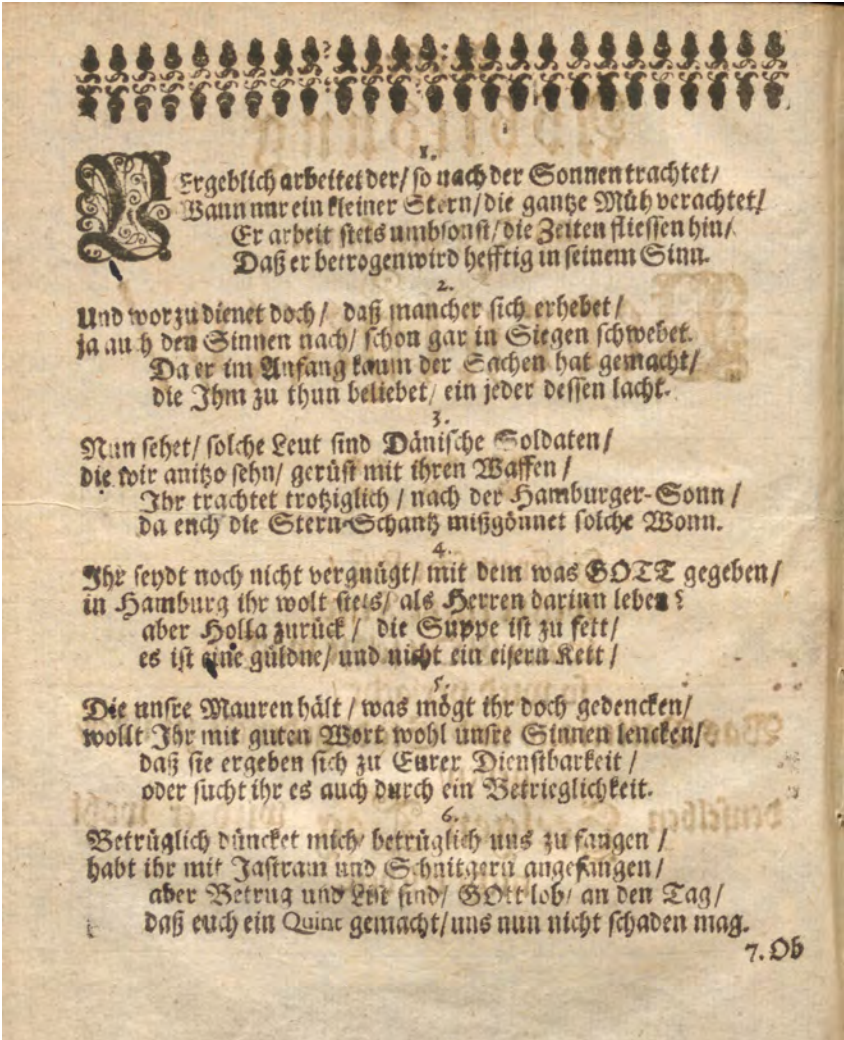 1.
VErgeblich arbeitet der/ so nach der Sonnen trachtet/
Wann nur ein kleiner Stern/ die gantze Müh verachtet/
Er arbeit stets umbsonst/ die Zeiten fliessen hin/
Daß er betrogen wird hefftig in seinem Sinn.
2.
Und worzu dienet doch/ daß mancher sich erhebet/
ja auch den Sinnen nach/ schon gar in Siegen schwebet.
Da er im Anfang kaum der Sachen hat gemacht/
die Ihm zu thun beliebet/ ein jeder dessen lacht.
3.
Nun sehet/ solche Leut sind Dänische Soldaten/
die wir anitzo sehn/ gerüst mit ihren Waffen/
Ihr trachtet trotziglich/ nach der Hamburger-Sonn/
da euch die Stern-Schantz mißgönnet solche Wonn.
4.
Ihr seydt noch nicht vergnügt/ mit dem was GOTT gegeben/
in Hamburg ihr wolt stets/ als Herren darinn leben?
aber Holla zurück/ die Suppe ist zu fett/
es ist eine güldne/ und nicht ein eisern Kett/
5.
Die unsre Mauren hält/ was mögt ihr doch gedencken/
wollt Ihr mit guten Wort wohl unsre Sinnen lencken/
daß sie ergeben sich zu Eurer Dienstbarkeit/
oder sucht ihr es auch durch ein Betrieglichkeit.
6.
Betrüglich düncket mich/ betrüglich uns zu fangen/
habt ihr mit Jastram und Schnitgern angefangen/
aber Betrug und List sind/ GOtt lob/ an den Tag/
daß euch ein Quint gemacht/ uns nun nicht schaden mag.
7. Ob